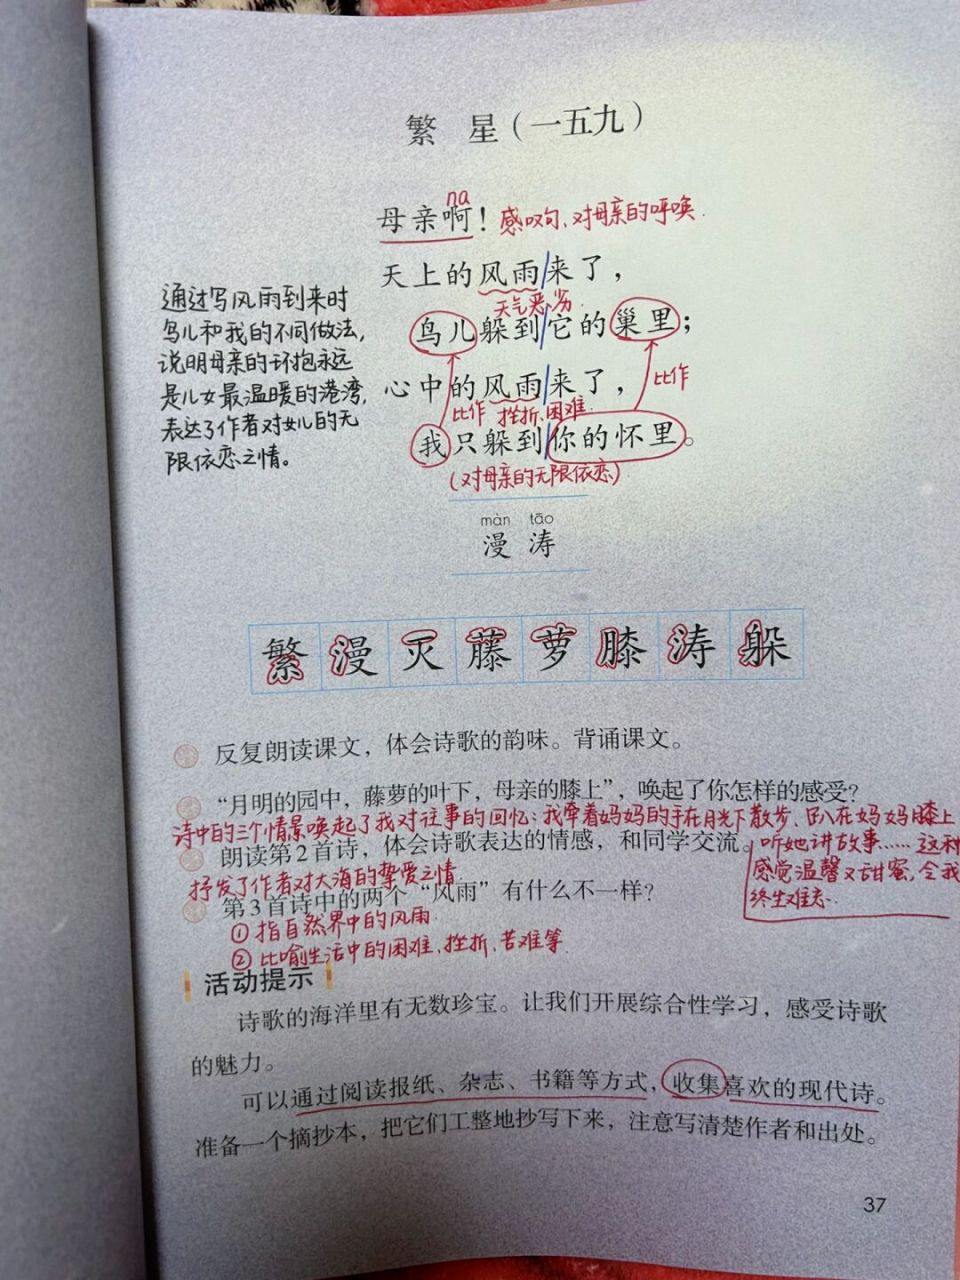 繁 星（一五九）
na
母亲啊！ 感叹句、对母亲的呼唤.
天上的风雨来了，
天气恶劣
鸟儿躲到它的巢里；
心中的风雨来了， 比作
比作 挫折、困难.
我只躲到你的怀里。
（对母亲的无限依恋）
通过写风雨到来时
鸟儿和我的不同做法，
说明母亲的环抱永远
是儿女最温暖的港湾，
表达了作者对女儿的无
限依恋之情。
màn tāo
漫 涛
繁 漫 灭 藤 萝 膝 涛 躲
反复朗读课文，体会诗歌的韵味。背诵课文。
“月明的园中，藤萝的叶下，母亲的膝上”，唤起了你怎样的感受？
诗中的三个情景唤起了我对往事的回忆：我牵着妈妈的手在月光下散步、趴在妈妈膝上
听她讲故事……这种
感觉温馨又甜蜜，令我
终生难忘.
朗读第2首诗，体会诗歌表达的情感，和同学交流。
抒发了作者对大海的挚爱之情.
第3首诗中的两个“风雨”有什么不一样？
①指自然界中的风雨.
②比喻生活中的困难、挫折、苦难等.
活动提示
诗歌的海洋里有无数珍宝。让我们开展综合性学习，感受诗歌
的魅力。
可以通过阅读报纸、杂志、书籍等方式，收集喜欢的现代诗。
准备一个摘抄本，把它们工整地抄写下来，注意写清楚作者和出处。
37